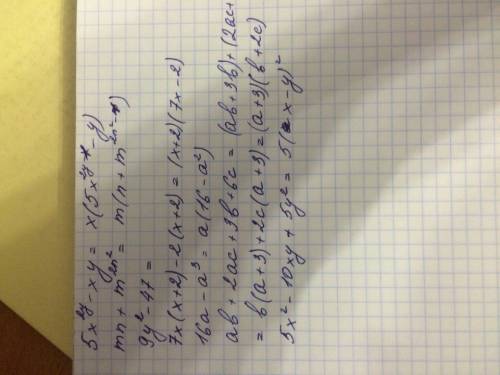 5x^{2y} - xy = x(5x^{2y} - y)
mn + m^{2n^2} = m(n + m^{2n^2})
9y^2 - 47 =
7x(x+2) - 2(x+2) = (x+2)(7x-2)
16a - a^3 = a(16 - a^2)
ab + 2ac + 3b + 6c = (ab + 3b) + (2ac +
= b(a+3) + 2c(a+3) = (a+3)(b+2c)
5x^2 - 10xy + 5y^2 = 5(x - y)^2